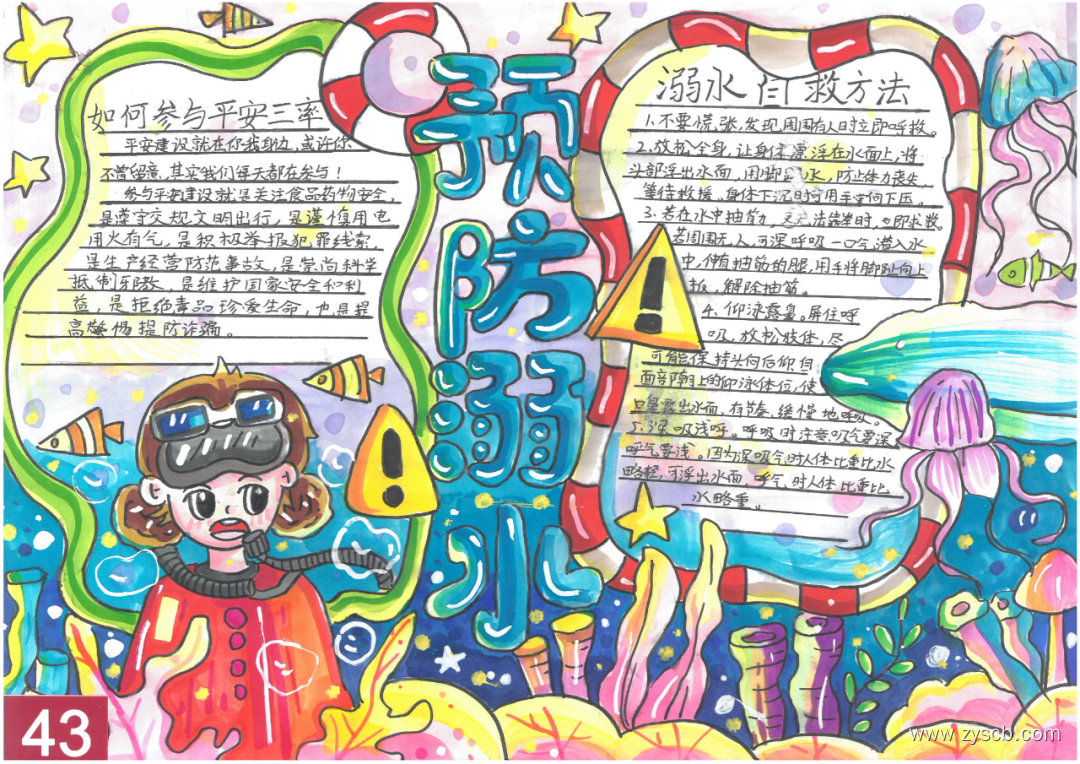 如何参与平安三率
平安建设就在你我身边,或许你
不曾留意,其实我们每天都在参与!
参与平安建设就是关注食品药物安全,
是遵守交规文明出行,是谨慎用电
用火有气,是积极举报犯罪线索,
是生产经营防范事故,是崇尚科学
抵制邪教,是维护国家安全和利
益,是拒绝毒品珍爱生命,也是提
高警惕提防诈骗。
预防溺水
溺水自救方法
1.不要慌张,发现周围有人时立即呼救。
2.放松全身,让身体漂浮在水面上,将
头部浮出水面,用脚 水,防止体力丧失,
等待救援。身体下沉时可用手掌向下压。
3.若在水中抽筋, 无法靠岸时,立即求救。
若周围无人,可深呼吸一口气潜入水
中,伸直抽筋的腿,用手将脚趾向上
扳,解除抽筋。
4.仰泳露鼻。屏住呼
吸,放松肢体,尽
可能保持头向后仰自
面部朝上的仰泳体位,使
口鼻露出水面、有节奏、缓慢地呼吸。
5.深吸浅呼。呼吸时注意吸气要深
呼气要浅。因为深吸气时人体比重比水
略轻,可浮出水面,呼气时人体比重比
水略重。
43
www.zyscb.com